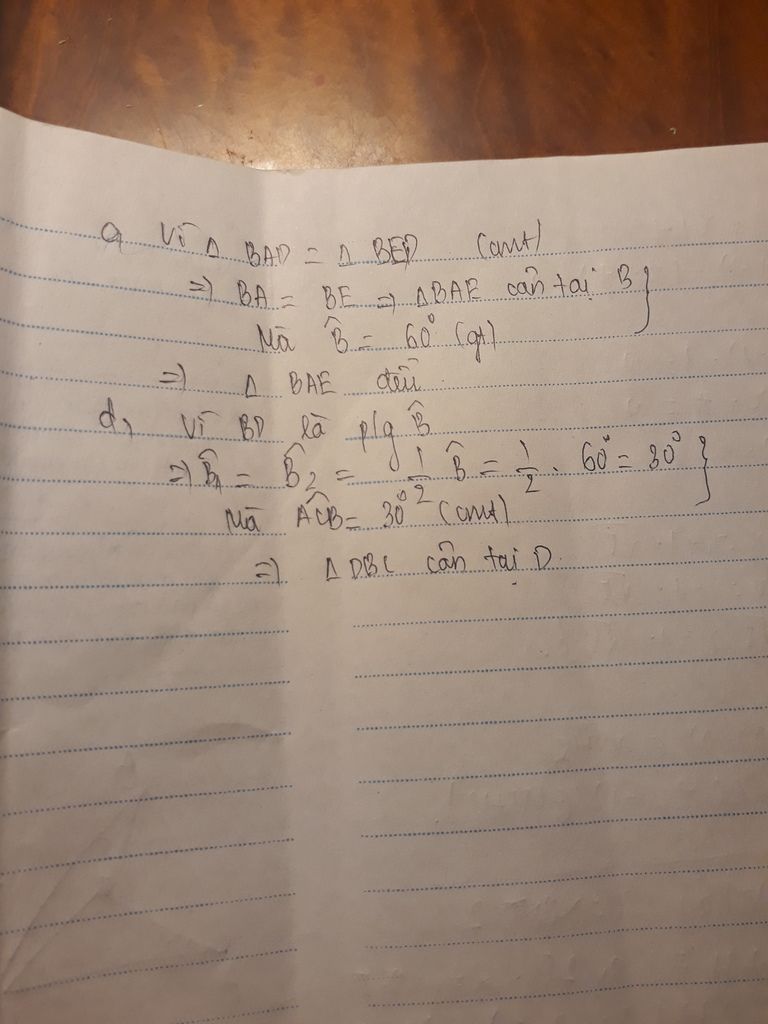 c, Vì Δ BAD = Δ BED (cmt)
=> BA = BE => ΔBAE cân tại B }
Mà B̂ = 60° (gt)
=> Δ BAE đều
d, Vì BD là p/g B̂
=> B̂₁ = B̂₂ = 1/2 B̂ = 1/2 . 60° = 30° }
Mà AĈB = 30° (cmt)
=> Δ DBC cân tại D.